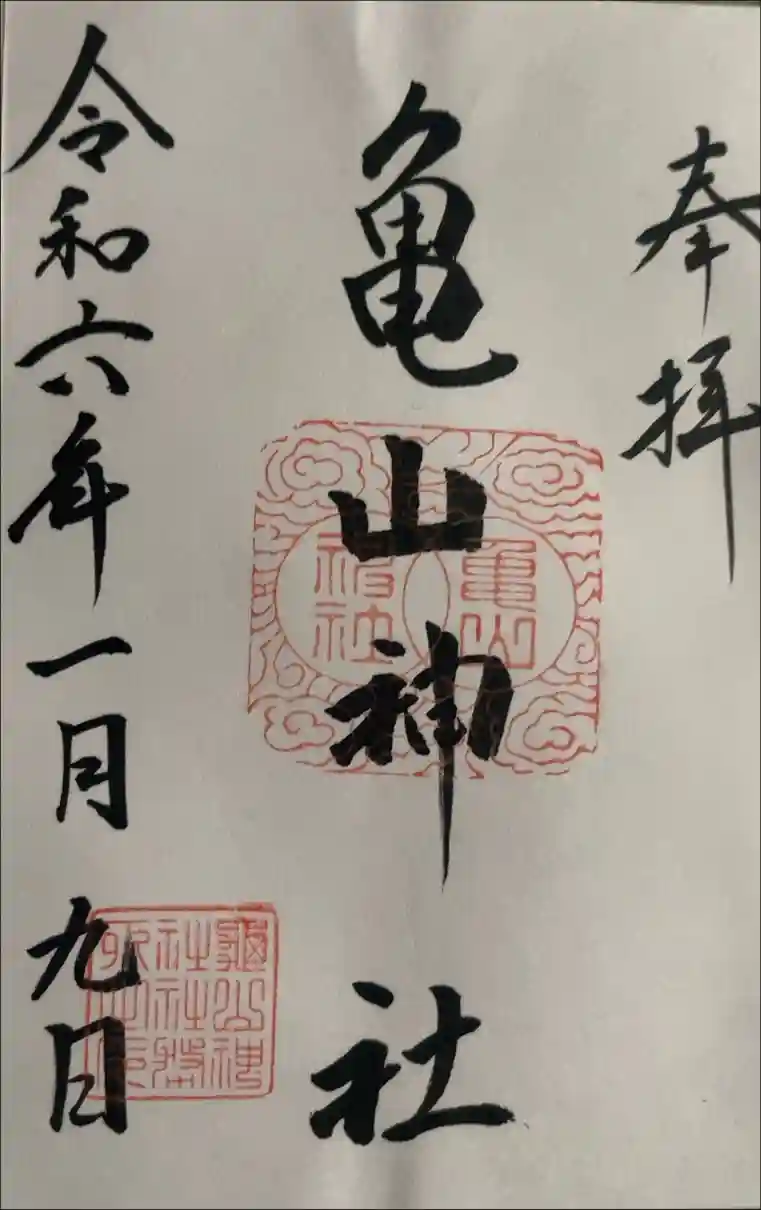 奉拝
亀山神社
亀山
神社
令和六年一月九日
龜山神
社社務
所之印